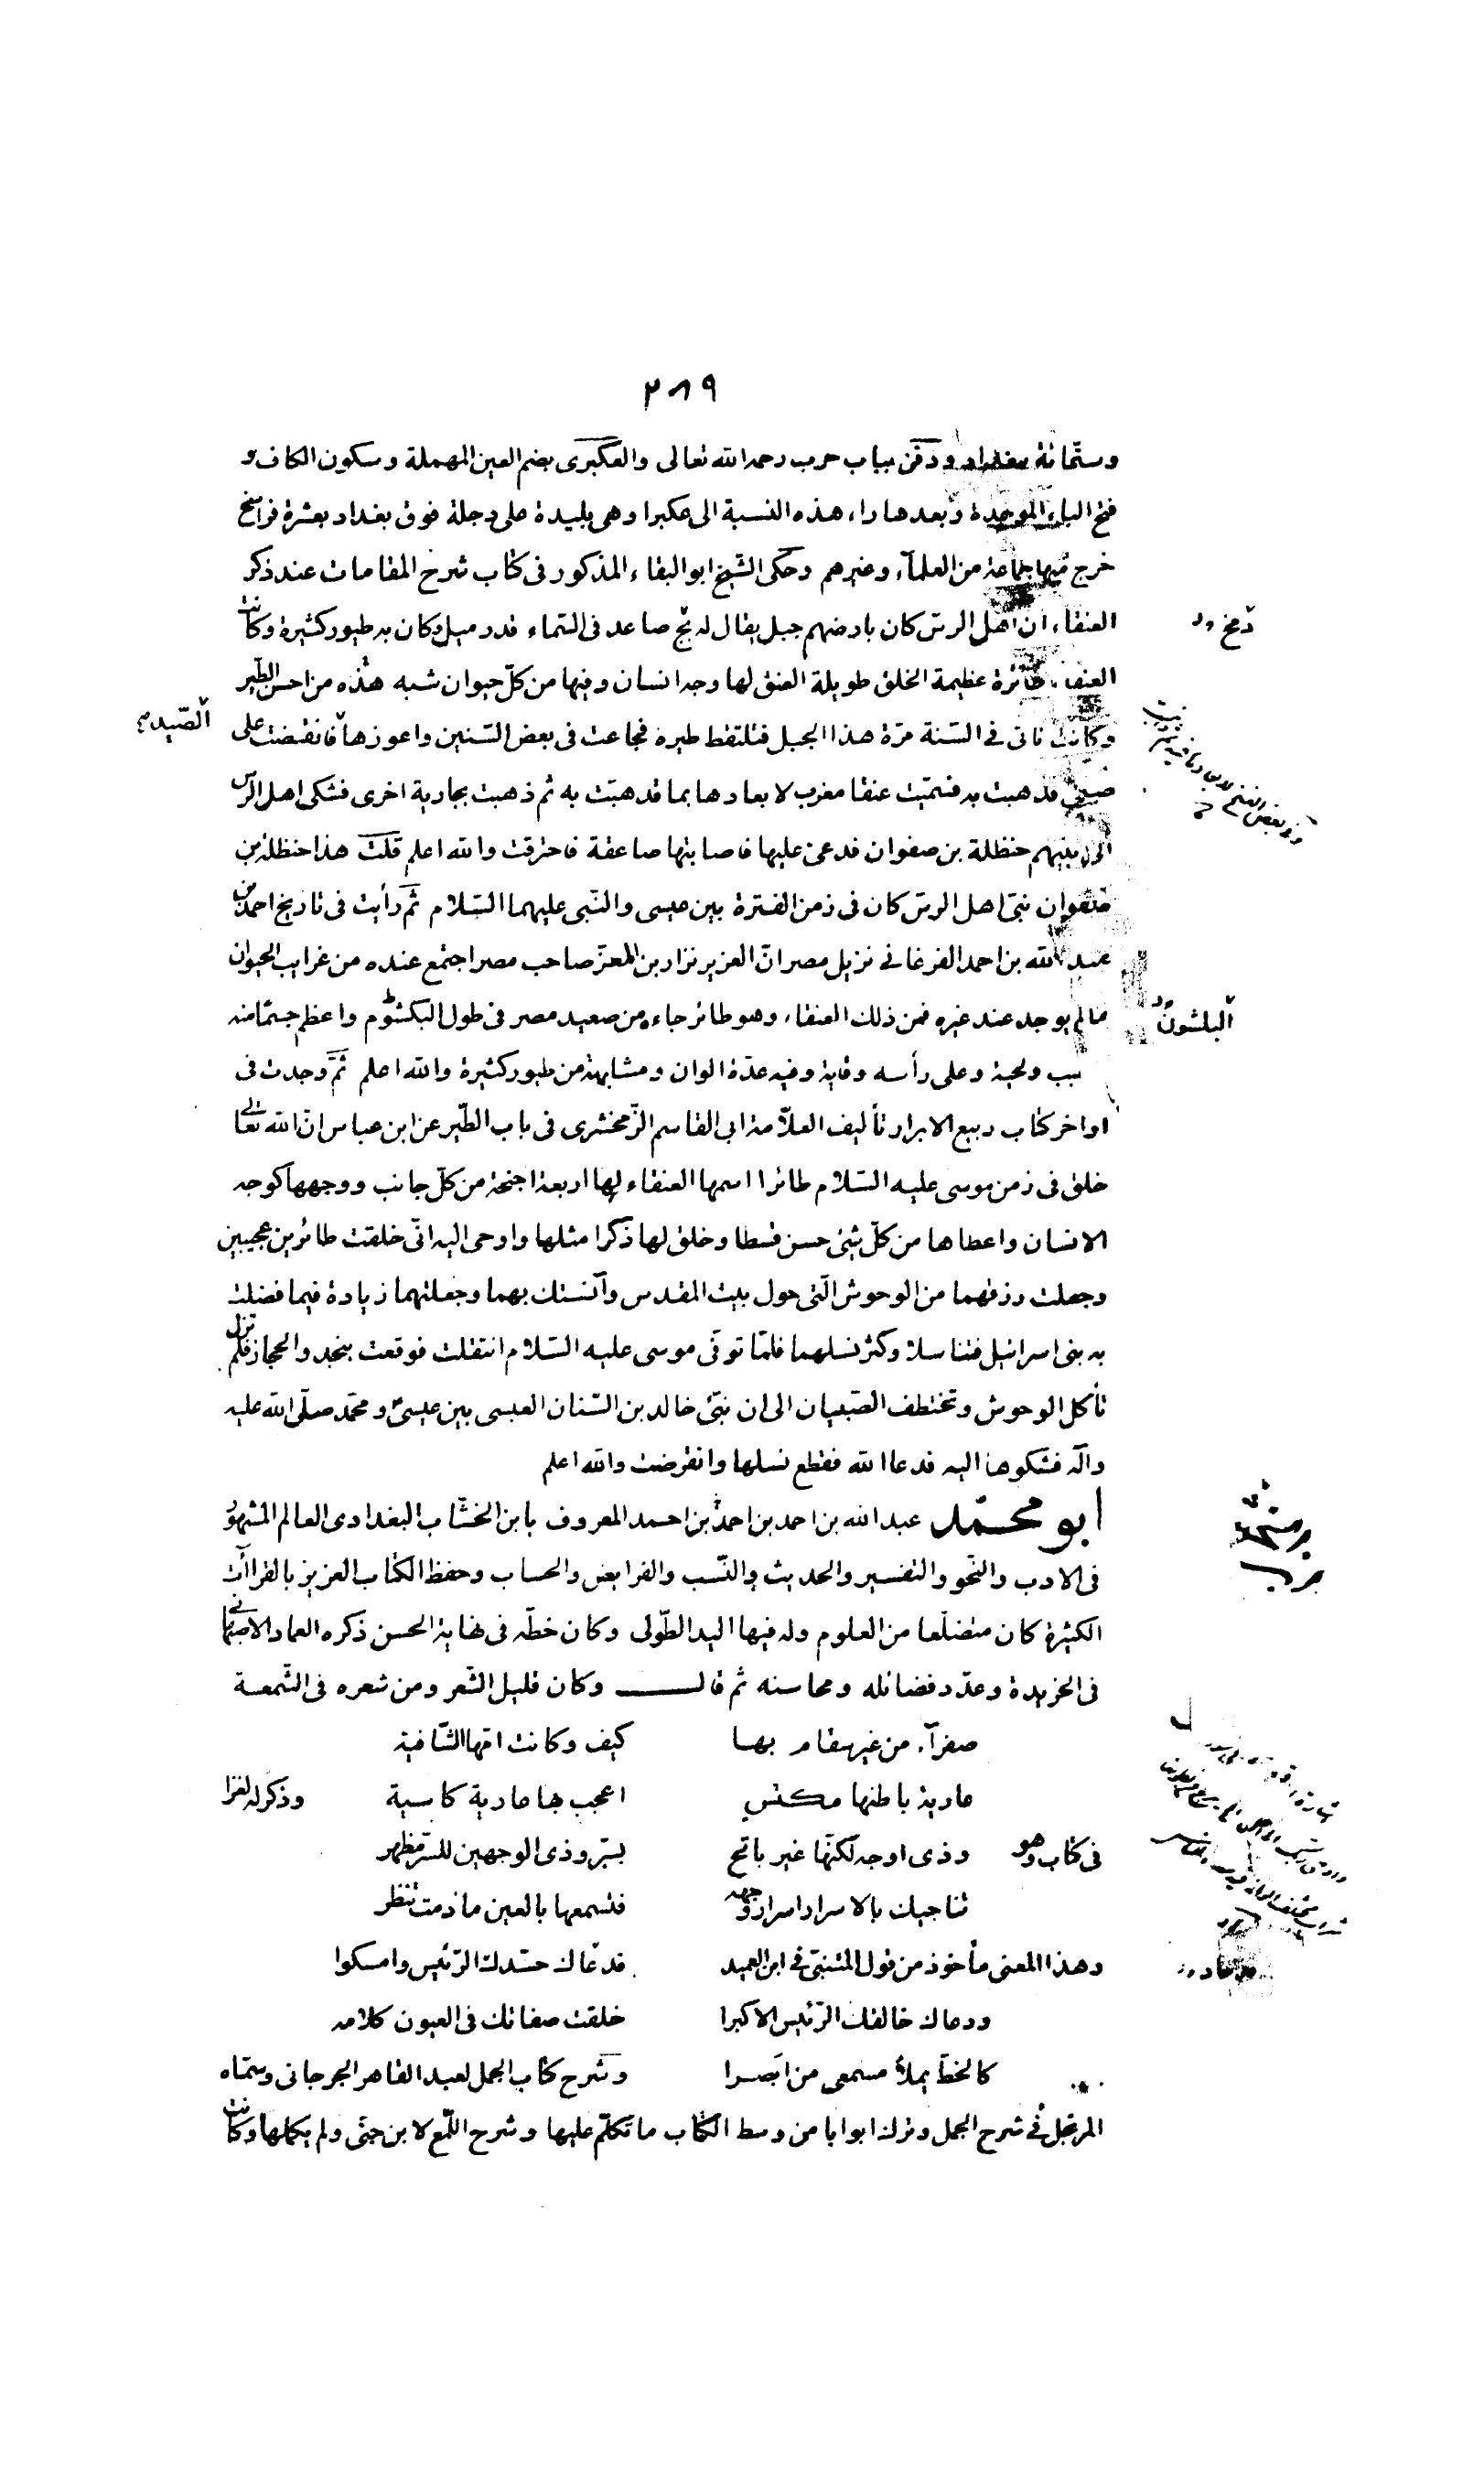 ٢٨٩
وستّمائة ببغداد ودفن بباب حرب رحمه الله تعالى والعكبرى بضم العين المهملة وسكون الكاف و
فتح الباء الموحدة وبعدها راء هذه النسبة الى عكبرا وهى بليدة على دجلة فوق بغداد بعشرة فراسخ
خرج منها جماعة من العلمآء وغيرهم وحكى الشيخ ابو البقاء المذكور فى كتاب شرح المقامات عند ذكر
العنقاء ان اهل الرس كان بارضهم جبل يقال له صاعد فى السّماء قدر ميل وكان به طيور كثيرة وكانت
دمخ
العنقاء طائرة عظيمة الخلق طويلة العنق لها وجه انسان وفيها من كلّ حيوان شبه هذه من احسن الطّير
وكانت تاتى فى السّنة مرّة هذا الجبل فتلتقط طيره فجاعت فى بعض السّنين واعوزها فانقضت على
الصّيد
صبى فذهبت به فسمّيت عنقا مغرب لابعادها بما تذهبت به ثم ذهبت بجارية اخرى فشكى اهل الرس
الى نبيهم حنظلة بن صفوان فدعى عليها فاصابتها صاعقة فاحترقت والله اعلم قلت هذا حنظلة بن
صفوان نبىّ اهل الرس كان فى زمن الفترة بين عيسى والنّبى عليهما السّلام ثمّ رأيت فى تاريخ احمد بن
عبد الله بن احمد الفرغانى نزيل مصر انّ العزيز نزار بن المعزّ صاحب مصر اجتمع عنده من غرايب الحيوان
مالم يوجد عند غيره فمن ذلك العنقاء وهو طائر جاءه من صعيد مصر فى طول البكشوم واعظم جسمًا منه
البلشون
ولحية وعلى رأسه وقاية وفيه عدّة الوان ومشابهة من طيور كثيرة والله اعلم ثمّ وجدت فى
اواخر كتاب ربيع الابرار تأليف العلاّمة ابى القاسم الزّمخشرى فى باب الطّير عن ابن عباس انّ الله تعالى
خلق فى زمن موسى عليه السّلام طائرا اسمها العنقاء لها اربعة اجنحة من كلّ جانب ووجهها كوجه
الانسان واعطاها من كلّ شئ حسن قسطا وخلق لها ذكرا مثلها واوحى اليه انّى خلقت طائرين عجيبين
وجعلت رزقهما من الوحوش الّتى حول بيت المقدس وآنستك بهما وجعلتهما زيادة فيما فضلت
به بنى اسرائيل فتناسلا وكثر نسلهما فلمّا توفّى موسى عليه السّلام انتقلت فوقعت بنجد والحجاز فلم تزل
تأكل الوحوش وتختطف الصّبيان الى ان نبّئ خالد بن السّنان العبسى بين عيسى ومحمّد صلّى الله عليه
وآله فشكوها اليه فدعا الله فقطع نسلها وانقرضت والله اعلم
أبو محمّد عبد الله بن احمد بن احمد بن احمد المعروف بابن الخشّاب البغدادى العالم المشهور
فى الادب والنّحو والتفسير والحديث والنّسب والفرايض والحساب وحفظ الكتاب العزيز بالقراآت
الكثيرة كان متضلّعا من العلوم وله فيها اليد الطّولى وكان خطّه فى نهاية الحسن ذكره العماد الاصبهانى
فى الخريدة وعدّد فضائله ومحاسنه ثم قال وكان قليل الشّعر ومن شعره فى الشّمعة
صفرآء من غير سقام بها كيف وكانت امّها الشّافية
عارية باطنها مكتس اعجب بها عارية كاسية وذكر له لغزا
فى كتاب وهو وذى اوجه لكنّها غير بائح بسرّ وذى الوجهين للسّر مظهر
تناجيك بالاسرار اسرار وجهه فتسمعها بالعين ما دمت تنظر
وهذا المعنى مأخوذ من قول المتنبّى فى ابن العميد فدعاك حسّدك الرّئيس وامسكوا
ودعاك خالقك الرّئيس الاكبرا خلقت صفاتك فى العيون كلامه
كالخطّ يملأ مسمعى من ابصرا وشرح كتاب الجمل لعبد القاهر الجرجانى وسمّاه
المرتجل فى شرح الجمل وترك ابوابا من وسط الكتاب ما تكلّم عليها وشرح اللّمع لابن جنّى ولم يكملها وكانت